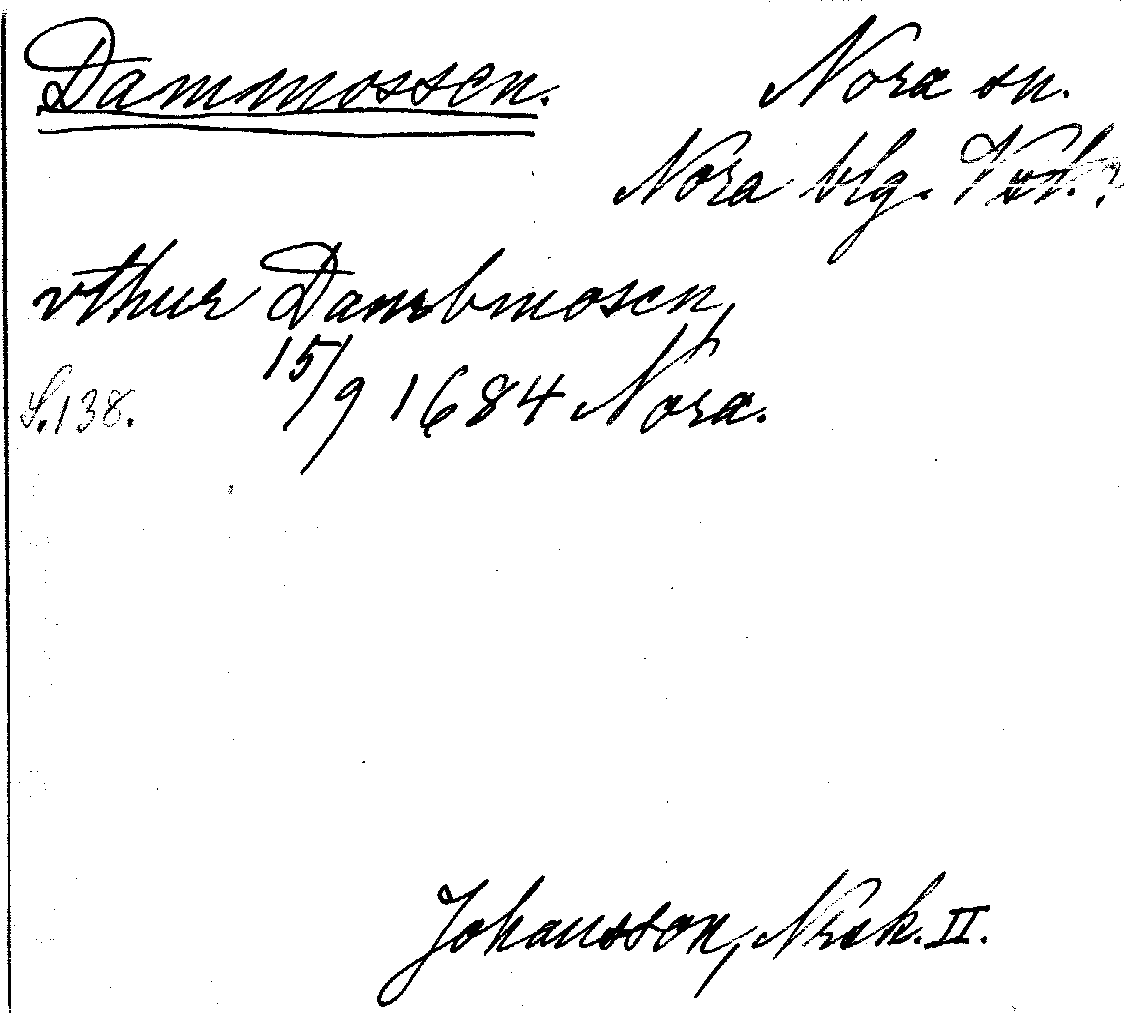 Dammossen. Nora sn.
Nora blg. Vstm.?
vthur Dambmosen,
15/9 1684 Nora.
S. 138.
Johansson, Nrsk. II.